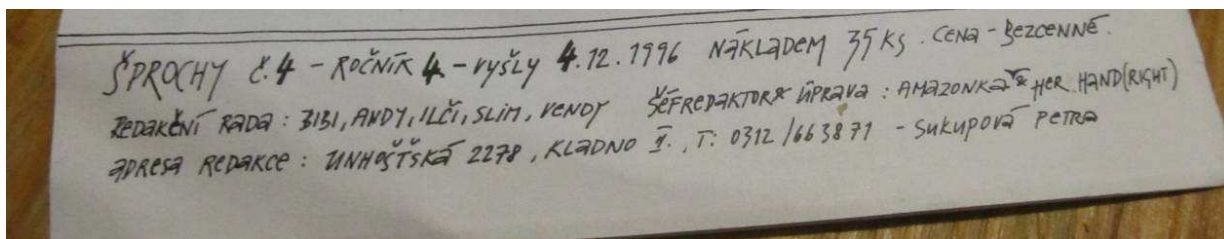 ŠPROCHY č.4 - ROČNÍK 4 - VYŠLY 4.12.1996 NÁKLADEM 35 KS. CENA - BEZCENNÉ.
REDAKČNÍ RADA: BIBI, ANDY, ILČI, SLIM, VENDY ŠÉFREDAKTOR & ÚPRAVA: AMAZONKA & HER HAND (RIGHT)
ADRESA REDAKCE: UNHOŠŤSKÁ 2278, KLADNO II., T: 0312/663871 - SUKUPOVÁ PETRA